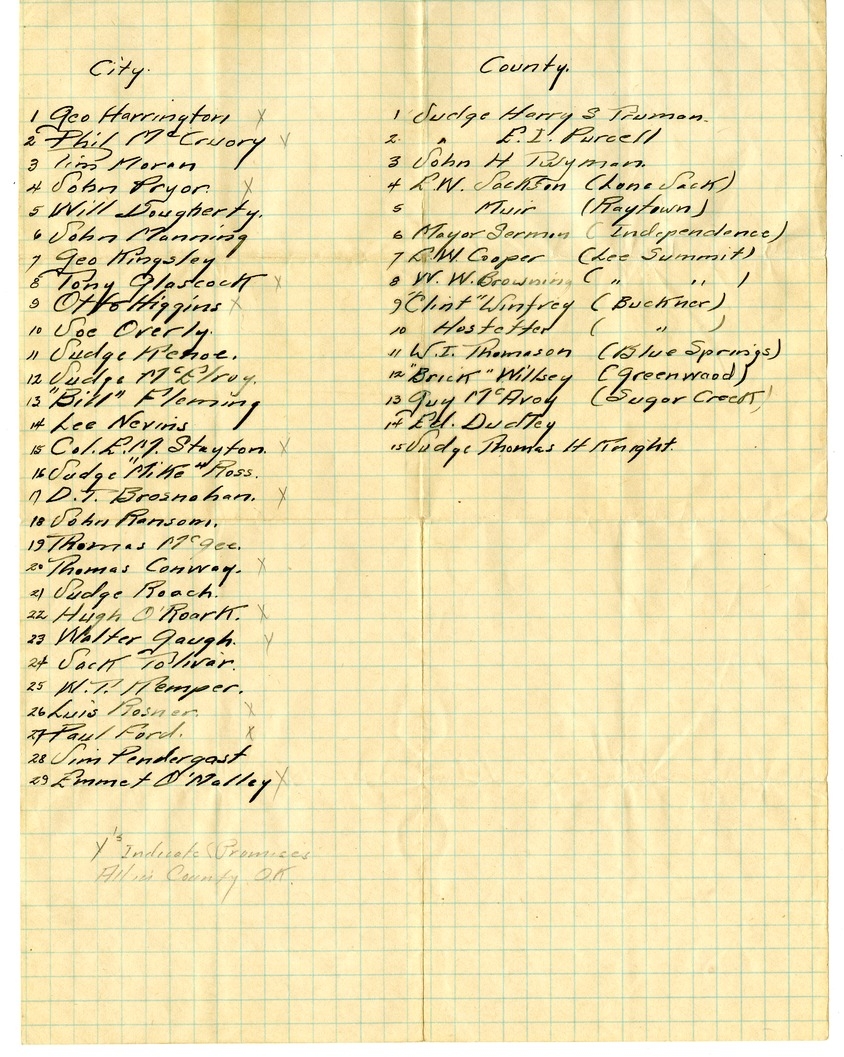 City.
1 Geo Harrington X
2 Phil McCruory X
3 Tim Moran
4 John Pryor. X
5 Will Dougherty.
6 John Manning
7 Geo Kingsley
8 Tony Glascock X
9 Otto Higgins X
10 Joe Overly.
11 Judge Kehoe.
12 Judge McElroy.
13 "Bill" Fleming
14 Lee Nevins
15 Col. E.M. Stayton. X
16 Judge "Mike" Ross.
17 D.T. Brosnahan. X
18 John Ransom.
19 Thomas McGee.
20 Thomas Conway. X
21 Judge Roach.
22 Hugh O'Roark. X
23 Walter Gaugh. X
24 Jack Tolivar.
25 W.T. Kemper.
26 Luis Rosner. X
27 Paul Ford. X
28 Jim Pendergast
29 Emmet O'Malley X
X's Indicate Promises
All in County O.K.
County.
1 Judge Harry S Truman.
2. " E.I. Purcell
3 John H Twyman.
4 L.W. Jackson (Lone Jack)
5 Muir (Raytown)
6 Mayor Sermon (Independence)
7 L.W. Cooper (Lee Summit)
8 W.W. Browning ( " " )
9 "Clint" Winfrey (Buckner)
10 Hostetter ( " )
11 W.I. Thomason (Blue Springs)
12 "Brick" Willsey (Greenwood)
13 Guy McAvoy (Sugar Creek)
14 Ed. Dudley
15 Judge Thomas H Knight.